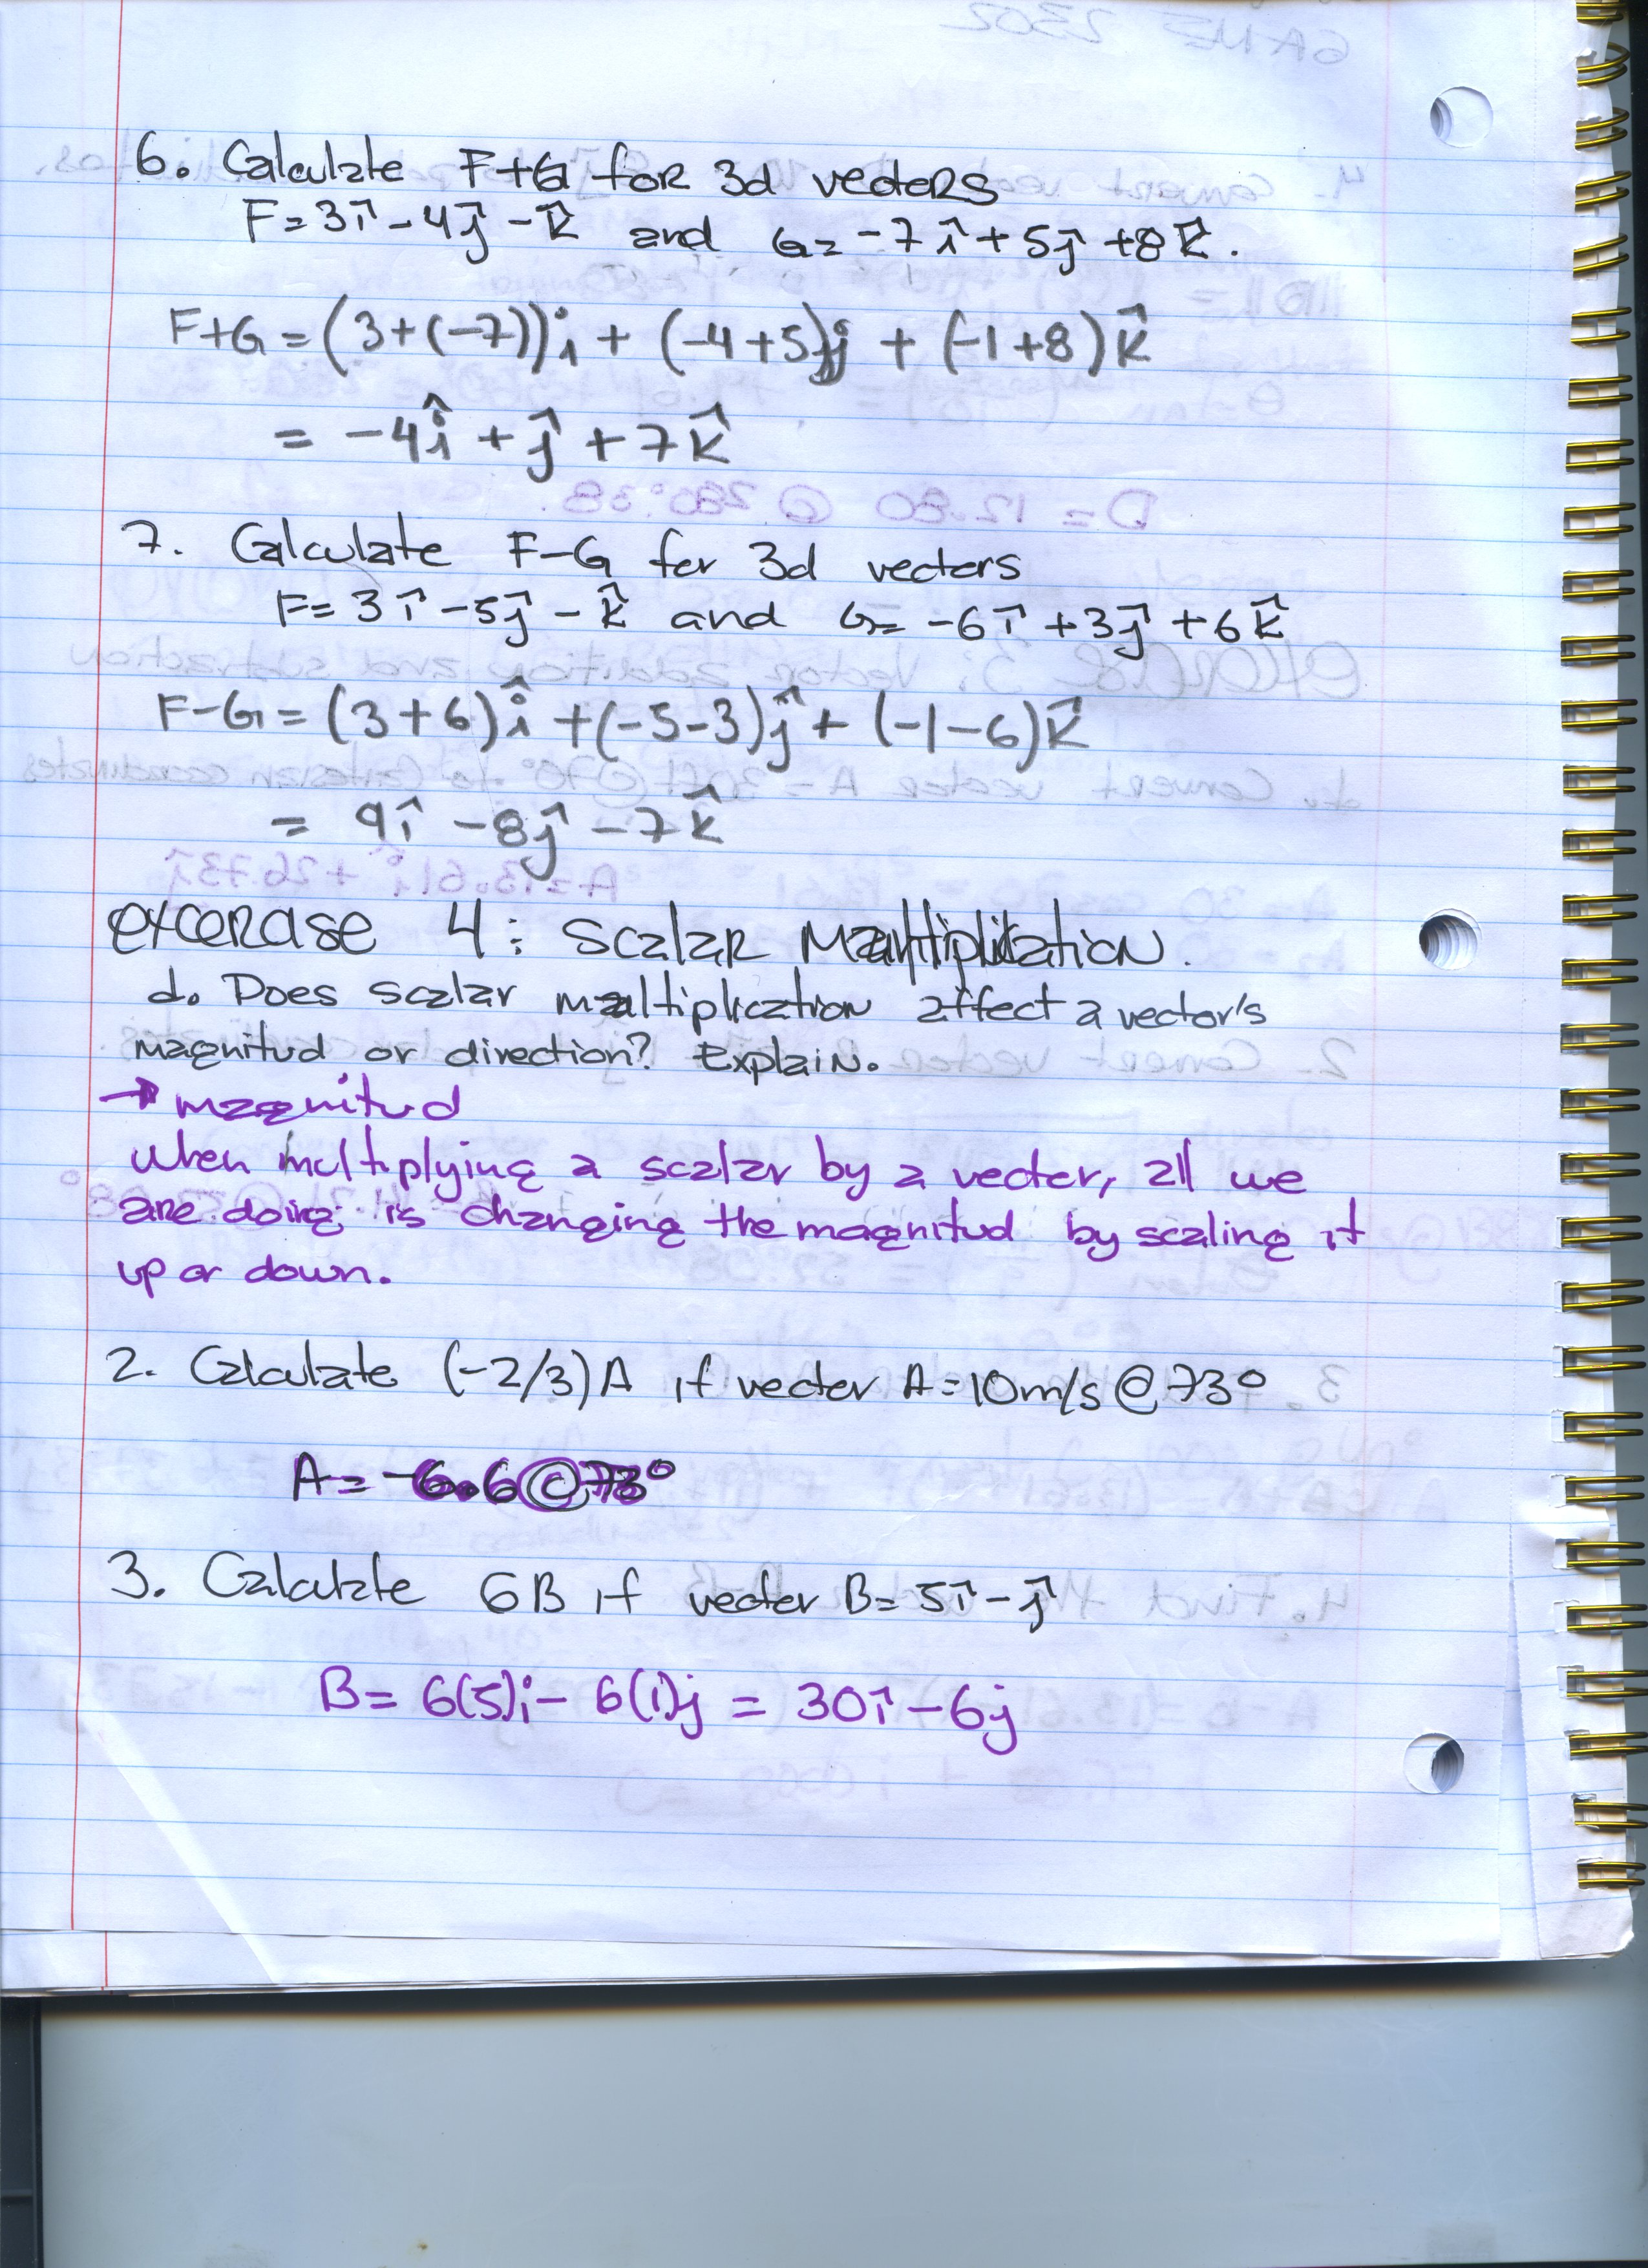 6. Calculate F+G for 3d vectors
F=3î-4ĵ-k̂ and G=-7î+5ĵ+8k̂.
F+G=(3+(-7))i+(-4+5)j+(-1+8)k̂
=-4î+ĵ+7k̂
7. Calculate F-G for 3d vectors
F=3î-5ĵ-k̂ and G=-6î+3ĵ+6k̂
F-G=(3+6)î+(-5-3)ĵ+(-1-6)k̂
= 9î-8ĵ-7k̂
excercise 4: Scalar Multiplication.
1. Does scalar multiplication affect a vector's
magnitud or direction? Explain.
→ magnitud
when multiplying a scalar by a vector, all we
are doing is changing the magnitud by scaling it
up or down.
2. Calculate (-2/3)A if vector A=10m/s@73°
A=-6.6@73°
3. Calculate 6B if vector B=5î-ĵ
B=6(5)i-6(1)j=30î-6j